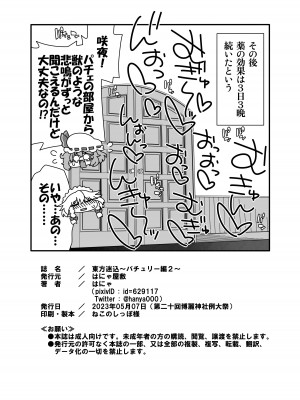 その後
薬の効果は3日3晩
続いたという
咲夜!
パチェの部屋から
獣のような
悲鳴がずっと
聞こえるんだけど
大丈夫なの!?
いや…あの…
その……
誌 名 / 東方迷込～パチュリー編2～
発行元 / はにゃ屋敷
著 者 / はにゃ
(pixivID : id=629117
Twitter : @hanya000)
発行日 / 2023年05月07日(第二十回博麗神社例大祭)
印刷・製本 / ねこのしっぽ様
≪お願い≫
●本誌は成人向けです。未成年者の方の購読、閲覧、譲渡を禁止します。
●発行元の許可なく本誌の一部、又は全部の複製、複写、転載、翻訳、
データ化の一切を禁止します。